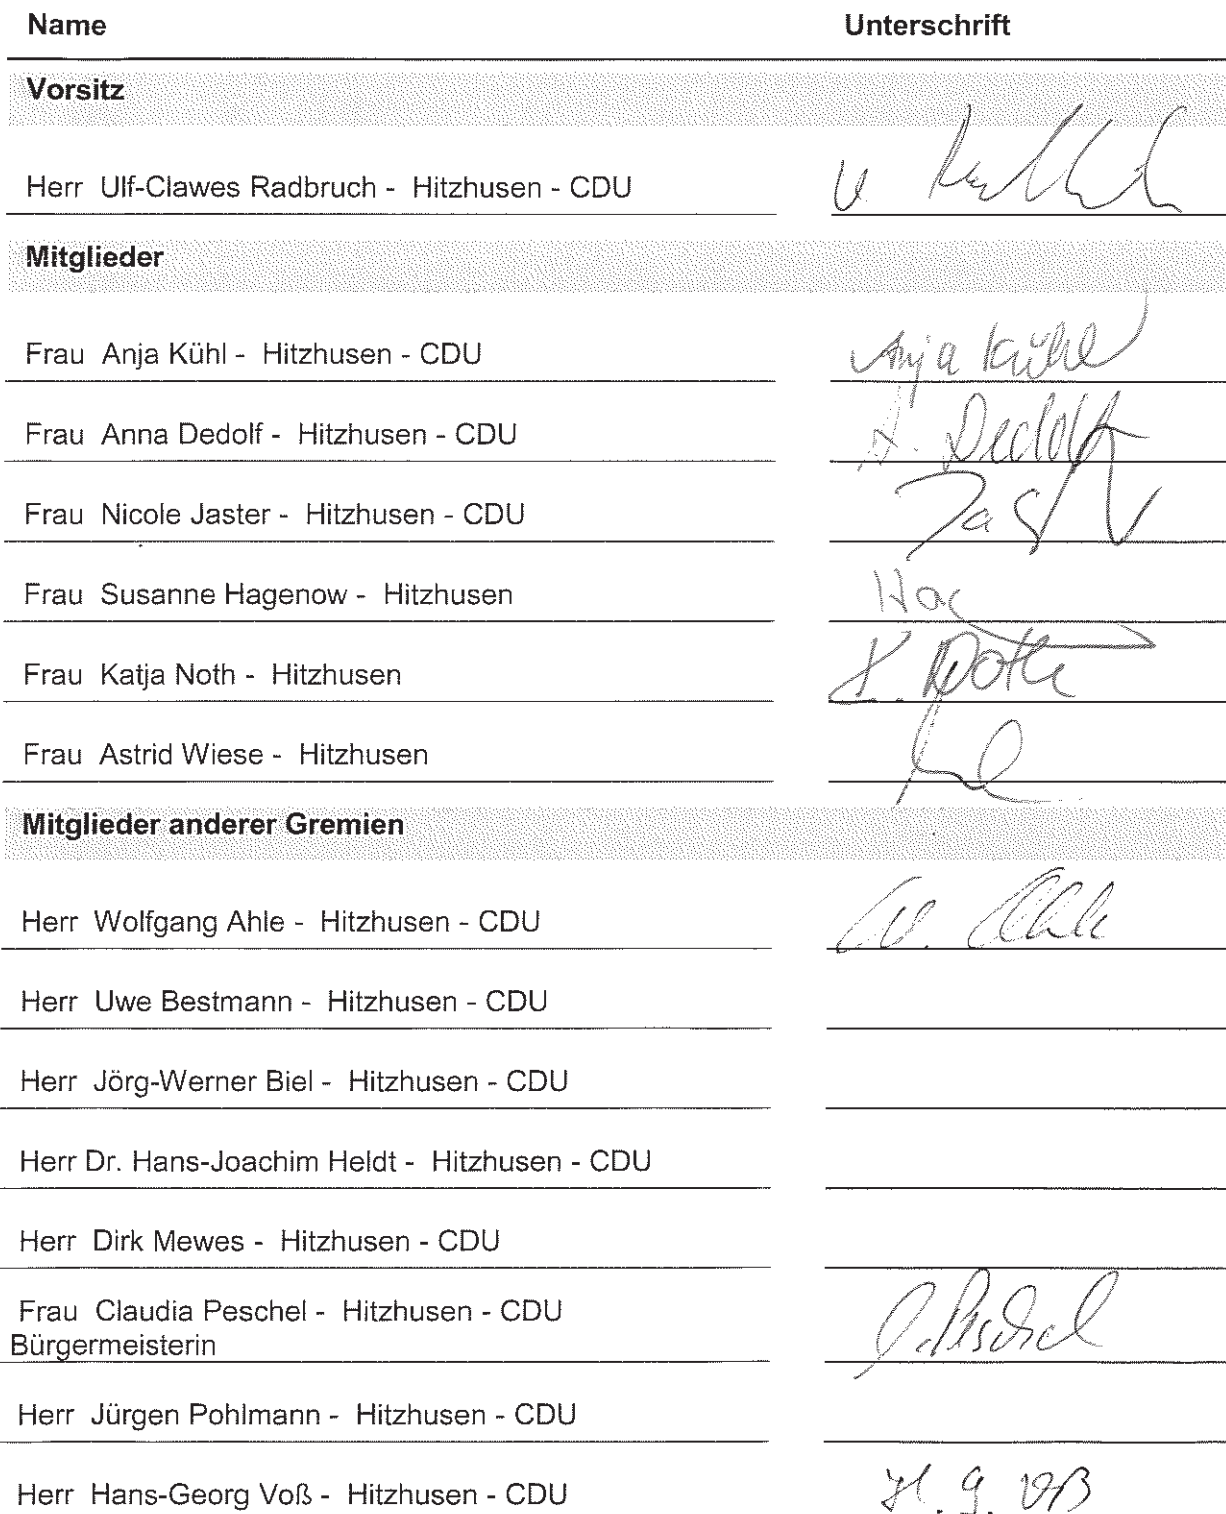 Name Unterschrift
Vorsitz
Herr Ulf-Clawes Radbruch - Hitzhusen - CDU
Mitglieder
Frau Anja Kühl - Hitzhusen - CDU Anja Kühl
Frau Anna Dedolf - Hitzhusen - CDU A. Dedolf
Frau Nicole Jaster - Hitzhusen - CDU
Frau Susanne Hagenow - Hitzhusen
Frau Katja Noth - Hitzhusen K. Noth
Frau Astrid Wiese - Hitzhusen
Mitglieder anderer Gremien
Herr Wolfgang Ahle - Hitzhusen - CDU W. Ahle
Herr Uwe Bestmann - Hitzhusen - CDU
Herr Jörg-Werner Biel - Hitzhusen - CDU
Herr Dr. Hans-Joachim Heldt - Hitzhusen - CDU
Herr Dirk Mewes - Hitzhusen - CDU
Frau Claudia Peschel - Hitzhusen - CDU C. Peschel
Bürgermeisterin
Herr Jürgen Pohlmann - Hitzhusen - CDU
Herr Hans-Georg Voß - Hitzhusen - CDU H. G. Voß